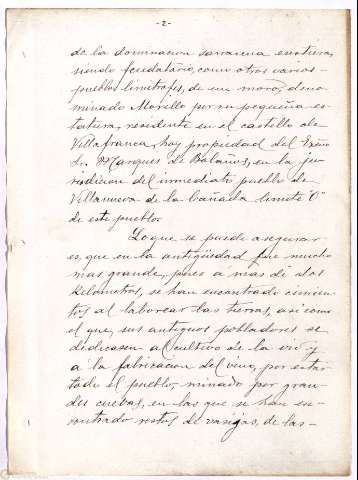 -2-
de la dominacion sarracena existiera,
siendo feudatario, como otros varios
pueblos limitrofes, de un moro, deno-
minado Morillo por su pequeña es-
tatura, residente en el castillo de
Villafranca, hoy propiedad del Exmo
Sr. Marques de Bolaños, en la ju-
risdicion del inmediato pueblo de
Villanueva de la Cañada limite "O"
de este pueblo.
Lo que se puede asegurar
es, que en la antigüedad fue mucho
mas grande, pues a mas de dos
kilometros, se han encontrado cimien-
tos al laborear las tierras, asi como
el que, sus antiguos pobladores se
dedicasen al cultivo de la vid y
a la fabricacion del vino, por estar
todo el pueblo, minado por gran-
des cuevas, en las que se han en-
contrado restos de vasijas, de las-